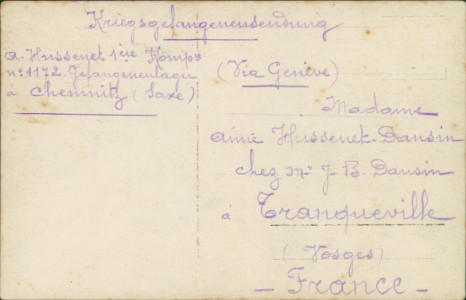 Kriegsgefangenensendung
A. Hussenet 1ère Komp.
n° 1172 Gefangenenlager
à Chemnitz (Saxe)
(Via Genève)
Madame
Aimé Hussenet-Dausin
chez Mr J-B. Dausin
à Tranqueville
(Vosges)
- France -